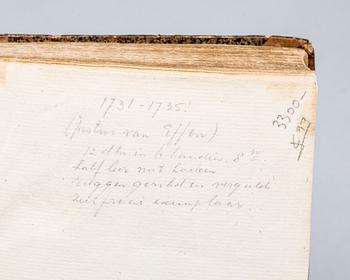 1731-1735.
(Justus van Effen)
12 dln in 6 banden. 8 vo.
half leer met hoeken
ruggen geribd en verguld
zeer fraai exemplaar.
3300-